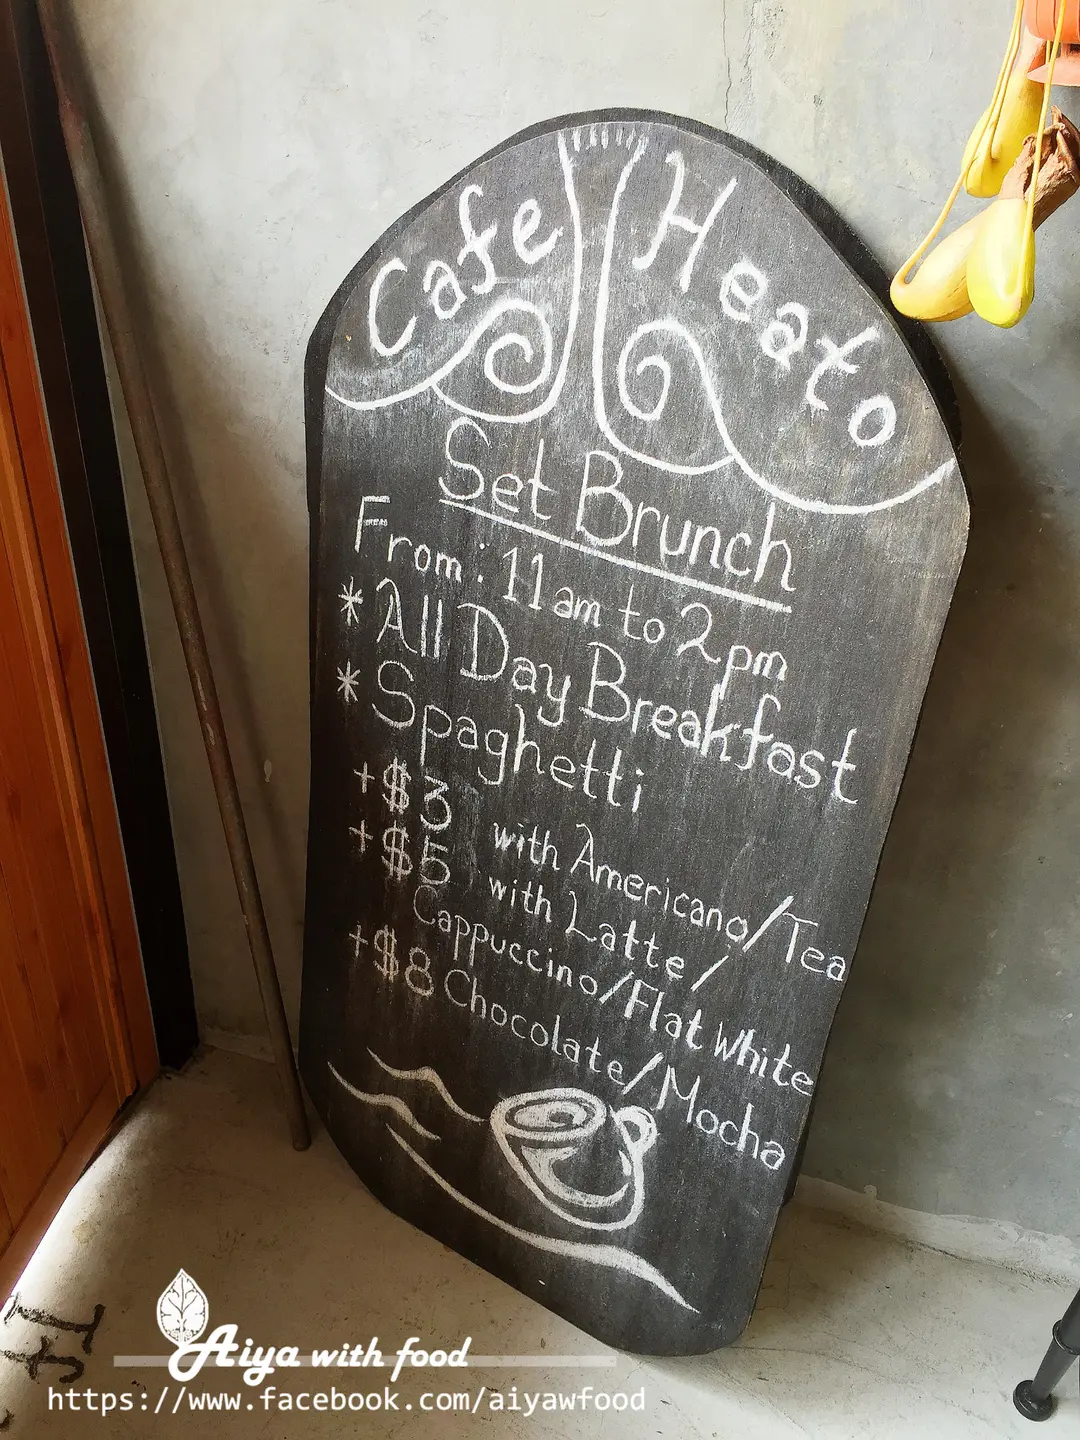 Cafe Heato
Set Brunch
From: 11am to 2pm
* All Day Breakfast
* Spaghetti
+$3 with Americano/Tea
+$5 with Latte/
Cappuccino/Flat White
+$8 Chocolate/Mocha
Aiya with food
https://www.facebook.com/aiyawfood